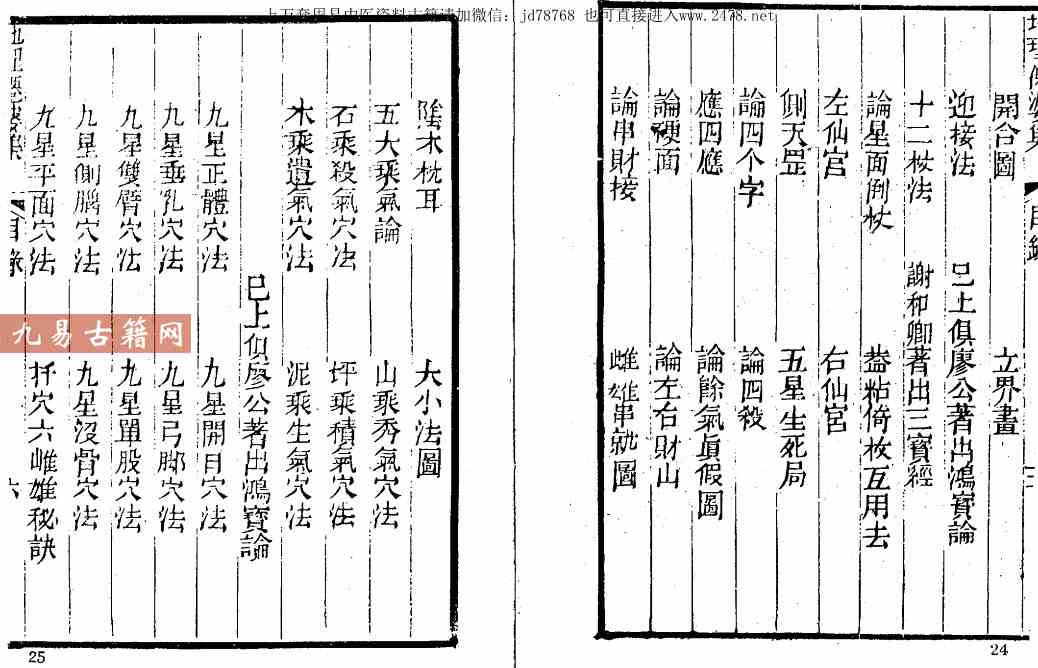 上万套周易中医资料古籍请加微信：jd78768 也可直接进入www.2478.net
目錄
開合圖 立界畫
迎接法 已上俱廖公著出鴻寶論
十二杖法 謝和卿著出三寶經
論星面倒杖 葢粘倚杖互用去
左仙宮 右仙宮
側天罡 五星生死局
論四个字 論四殺
應四應 論餘氣眞假圖
論硬面 論左右財山
論串財接 雌雄串就圖
24
陰木枕耳 大小法圖
五大乘氣論 山乘秀氣穴法
石乘殺氣穴法 坪乘積氣穴法
木乘遺氣穴法 泥乘生氣穴法
已上俱廖公著出鴻寶論
九星正體穴法 九星開口穴法
九星垂乳穴法 九星弓脚穴法
九星雙臂穴法 九星單股穴法
九星側腦穴法 九星沒骨穴法
九星平面穴法 扦穴六雌雄秘訣
目錄 六
25
九易古籍网